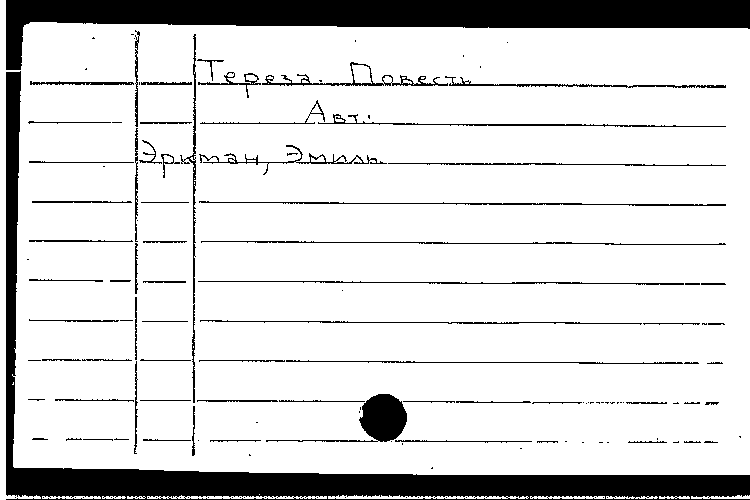 Тереза. Повесть
Авт.:
Эркман, Эмиль